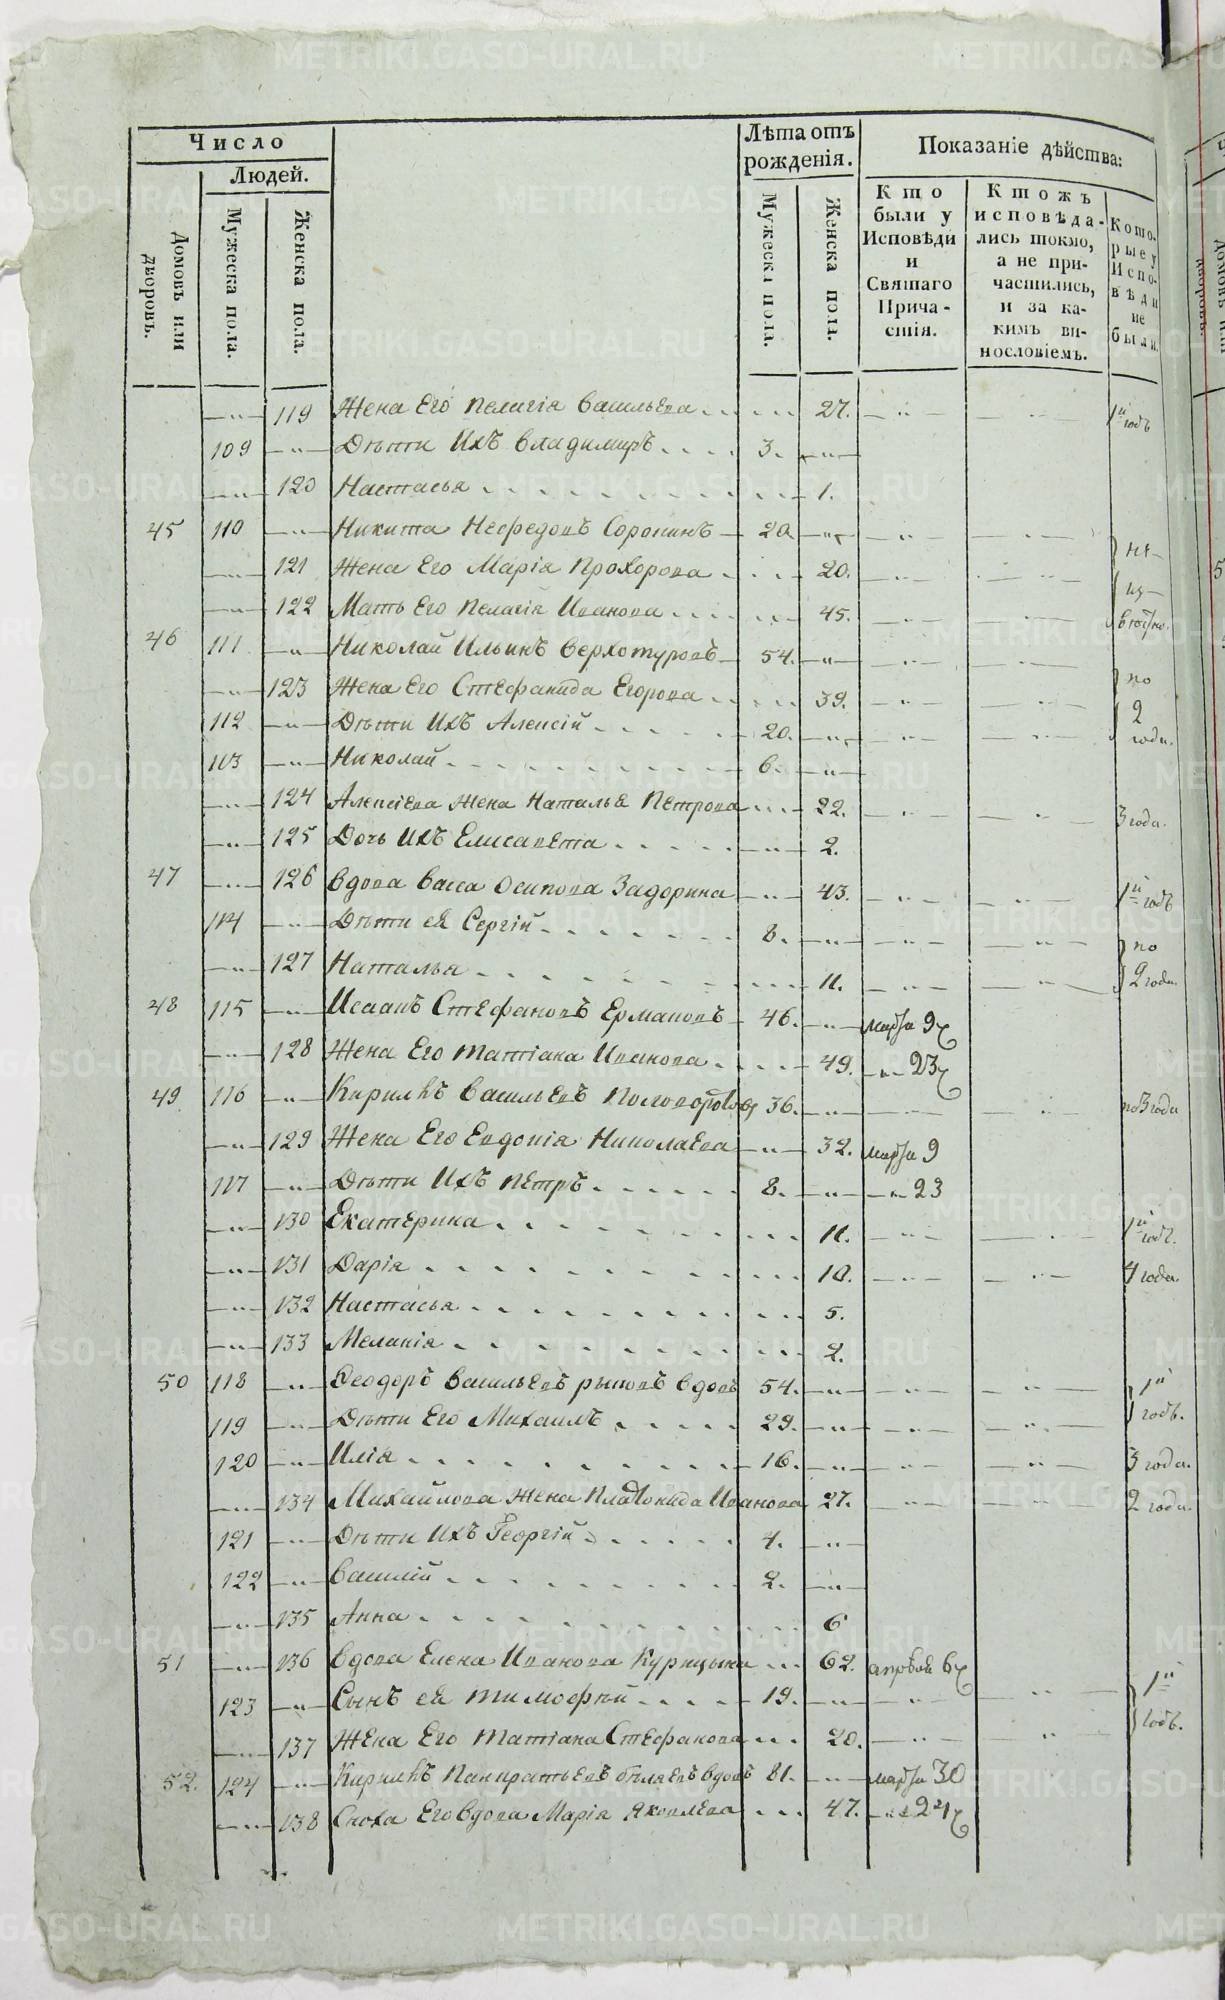 Число
Людей.
Домовъ или дворовъ.
Мужеска пола.
Женска пола.
Лѣта отъ рожденія.
Мужеска пола.
Женска пола.
Показаніе дѣйства:
Кто были у Исповѣди и Святаго Причастія.
Ктожъ исповѣдались токмо, а не причастились, и за какимъ винословіемъ.
Которые у Исповѣди не были.
119 Жена Его Пелагія Васильева 27. 1й годъ
109 Дѣти Ихъ Владимиръ 3.
120 Настасья 1.
45 110 Никита Нефедовъ Сорокинъ 20
121 Жена Его Марія Прохорова 20.
122 Мать Его Пелагія Иванова 45.
46 111 Николай Ильинъ Верхотуровъ 54.
123 Жена Его Стефанида Егорова 39. по
112 Дѣти Ихъ Алексій 20. 2 года.
113 Николай 6.
124 Алексіева Жена Наталья Петрова 22. 3 года.
125 Дочь Ихъ Елисавета 2.
47 126 Вдова Васса Осипова Задорина 43. 1й годъ
114 Дѣти ея Сергій 8. по
127 Наталья 11. 2 года.
48 115 Исаакъ Стефановъ Ермаковъ 46. марта 9
128 Жена Его Татіана Иванова 49. 23
49 116 Кирилъ Васильевъ 36. по 3 года
129 Жена Его Евдокія Николаева 32. марта 9
117 Дѣти Ихъ Петръ 8. 23
130 Екатерина 11. 1й годъ.
131 Дарія 10. 4 года.
132 Настасья 5.
133 Меланія 2.
50 118 Ѳеодоръ Васильевъ Рыковъ вдовъ 54. 1й
119 Дѣти Его Михаилъ 29. годъ.
120 Илія 16. 3 года.
134 Михайлова Жена Платонида Иванова 27. 2 года.
121 Дѣти Ихъ Георгій 4.
122 Василій 2.
135 Анна 6
51 136 Вдова Елена Иванова Курицына 62. 6
123 Сынъ ея Тимофѣй 19. 1й
137 Жена Его Татіана Стефанова 20. годъ.
52. 124 Кирилъ Панкратьевъ Бѣляевъ вдовъ 81. марта 30
138 Сноха Его вдова Марія Яковлева 47. 24
METRIKI.GASO-URAL.RU